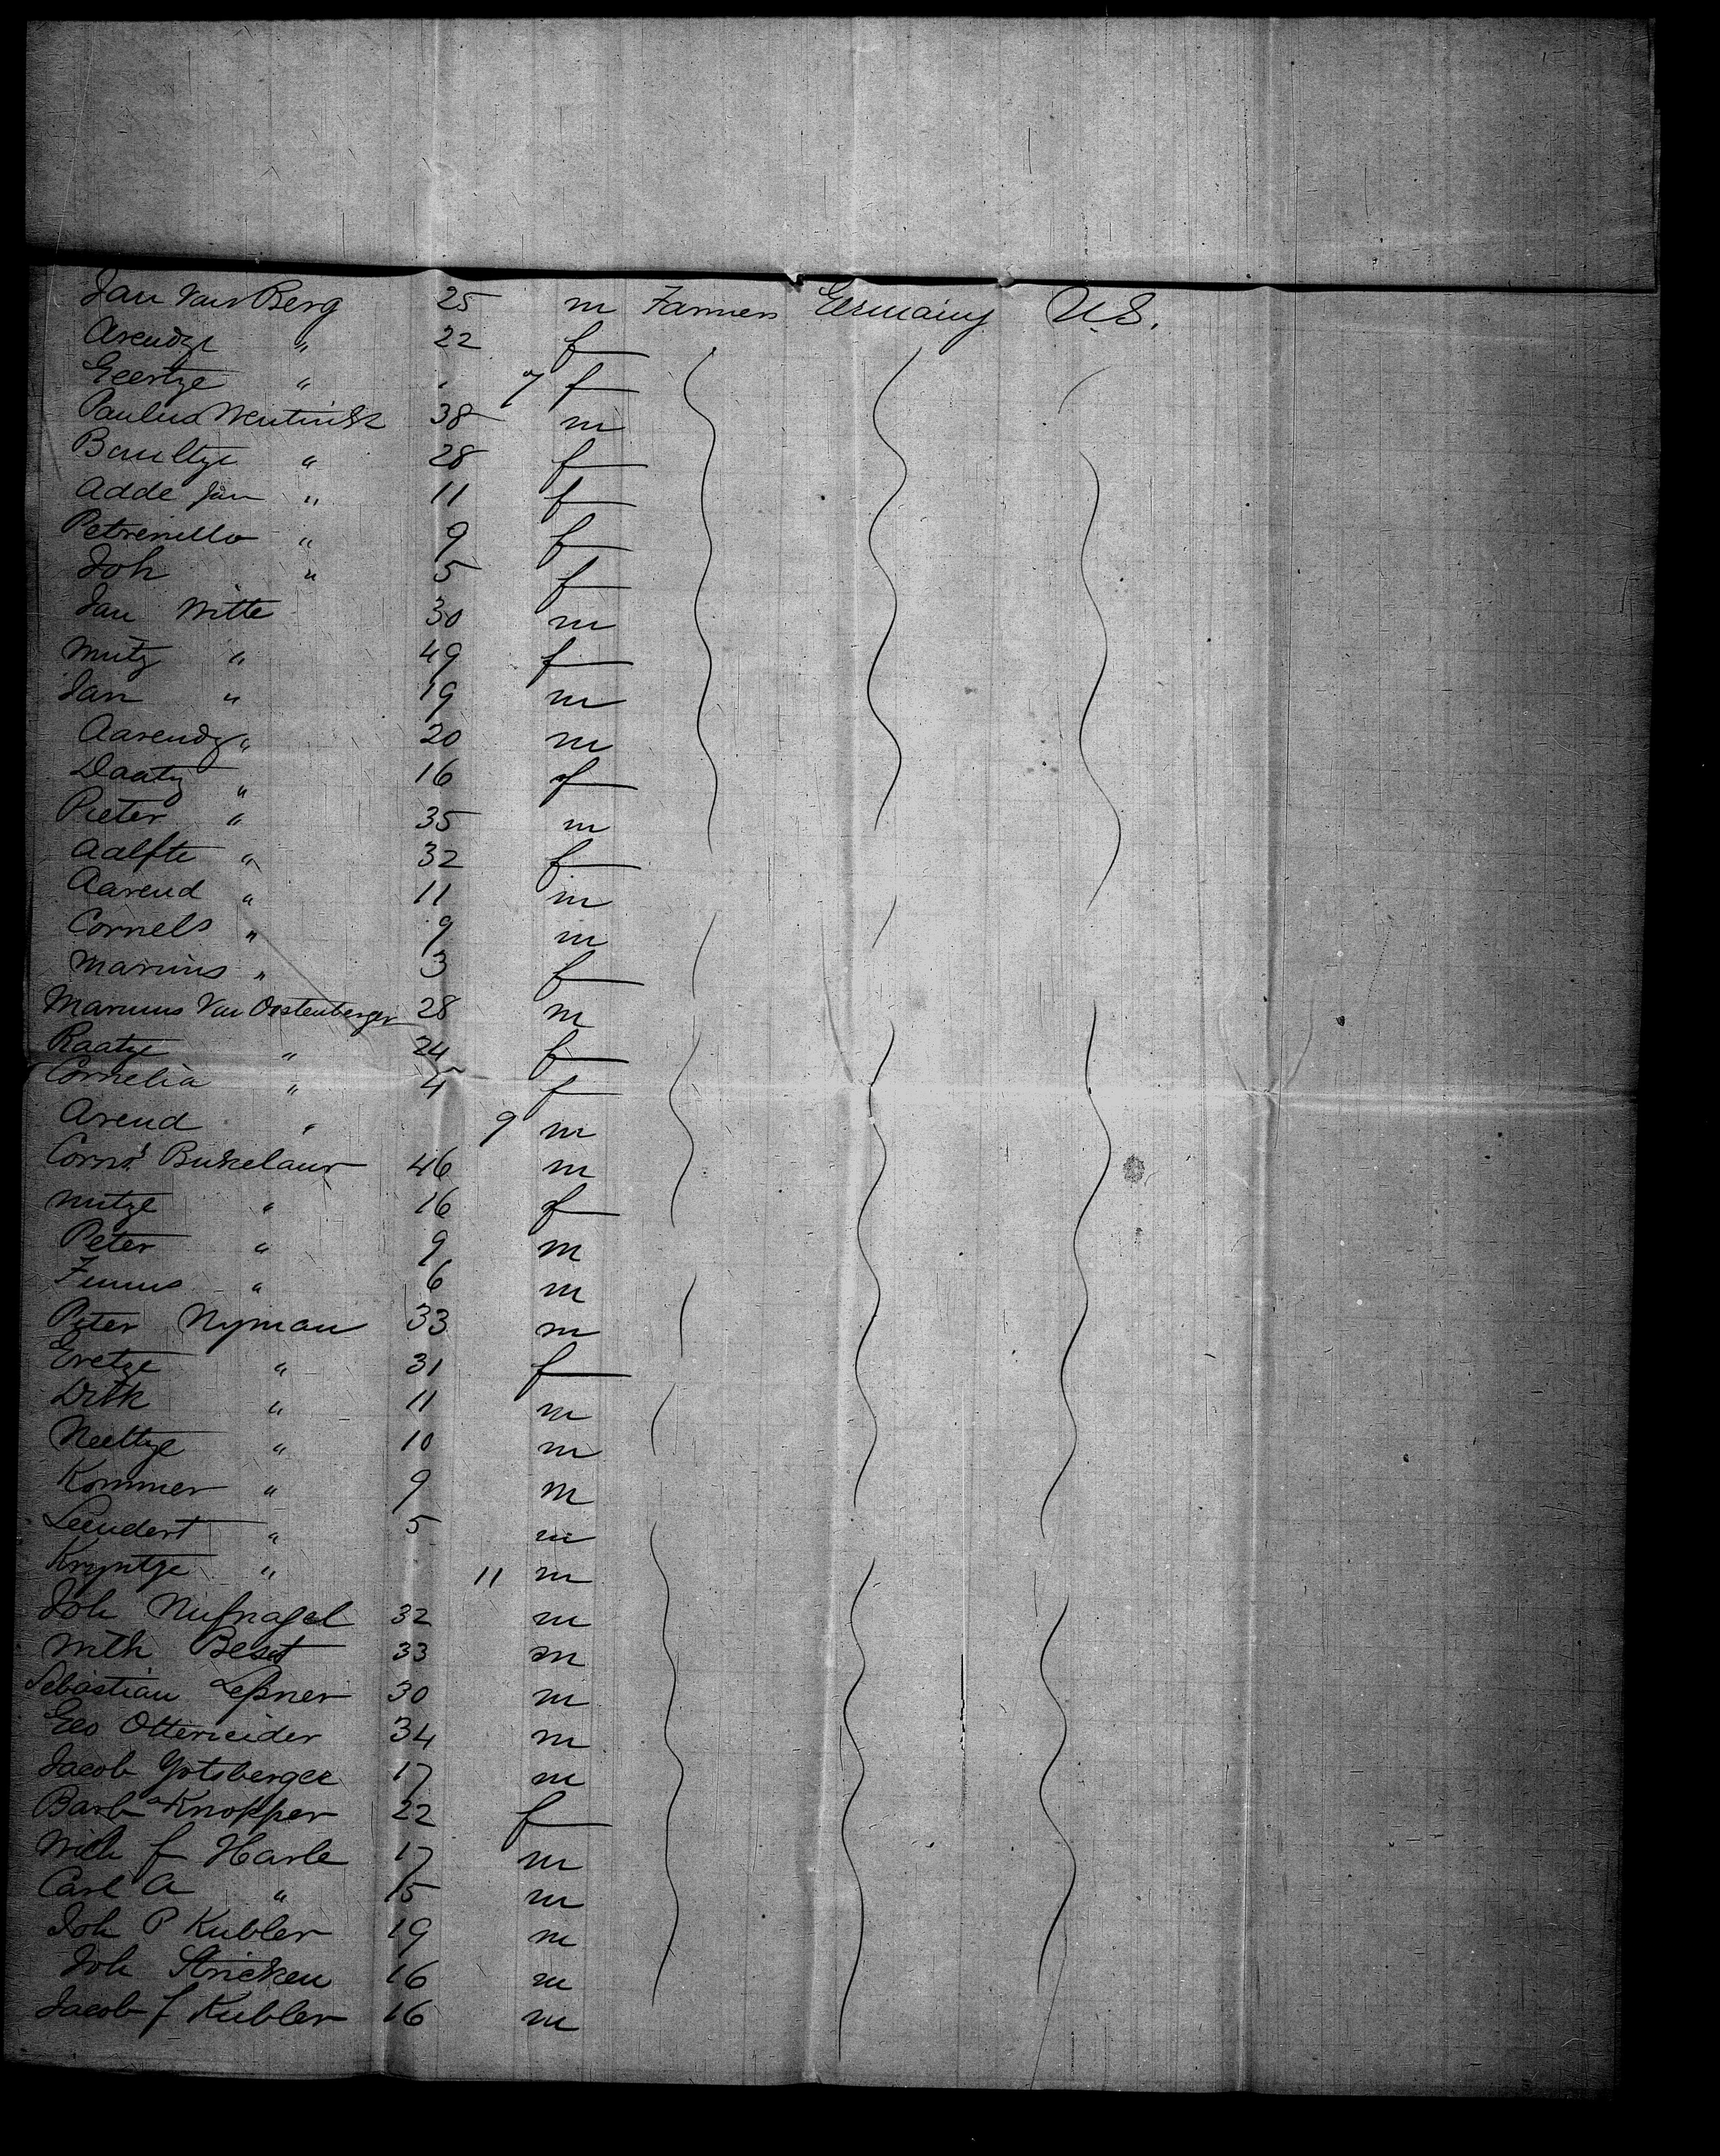 Jan Van Berg 25 m Farmer Germany U.S.
Arendze " 22 f
Geertze " " 7 f
Paulus Wentink 38 m
Boultze " 28 f
Adde Jan " 11 f
Petrenilla " 9 f
Joh " 5 f
Jan Witte 30 m
Mutz " 49 f
Jan " 19 m
Aarendz " 20 m
Daatz " 16 f
Pieter " 35 m
Aalfte " 32 f
Aarend " 11 m
Cornels " 9 m
Marinus " 3 f
Marinus Van Oostenberger 28 m
Raatze " 24 f
Cornelia " 4 f
Arend " 9 m
Corns Bukelaur 46 m
Mutze " 16 f
Peter " 9 m
" 6 m
Peter Nyman 33 m
Eretze " 31 f
Dirk " 11 m
Neeltze " 10 m
Kommer " 9 m
Leendert " 5 m
Kryntze " 11 m
Joh Hufnagel 32 m
Mth Besst 33 m
Sebastian Leßner 30 m
Geo Ottereider 34 m
Jacob Yotsberger 17 m
Barba Knopper 22 f
Wich f Harle 17 m
Carl A " 15 m
Joh P Kubler 19 m
Joh Stricken 16 m
Jacob f Kubler 16 m